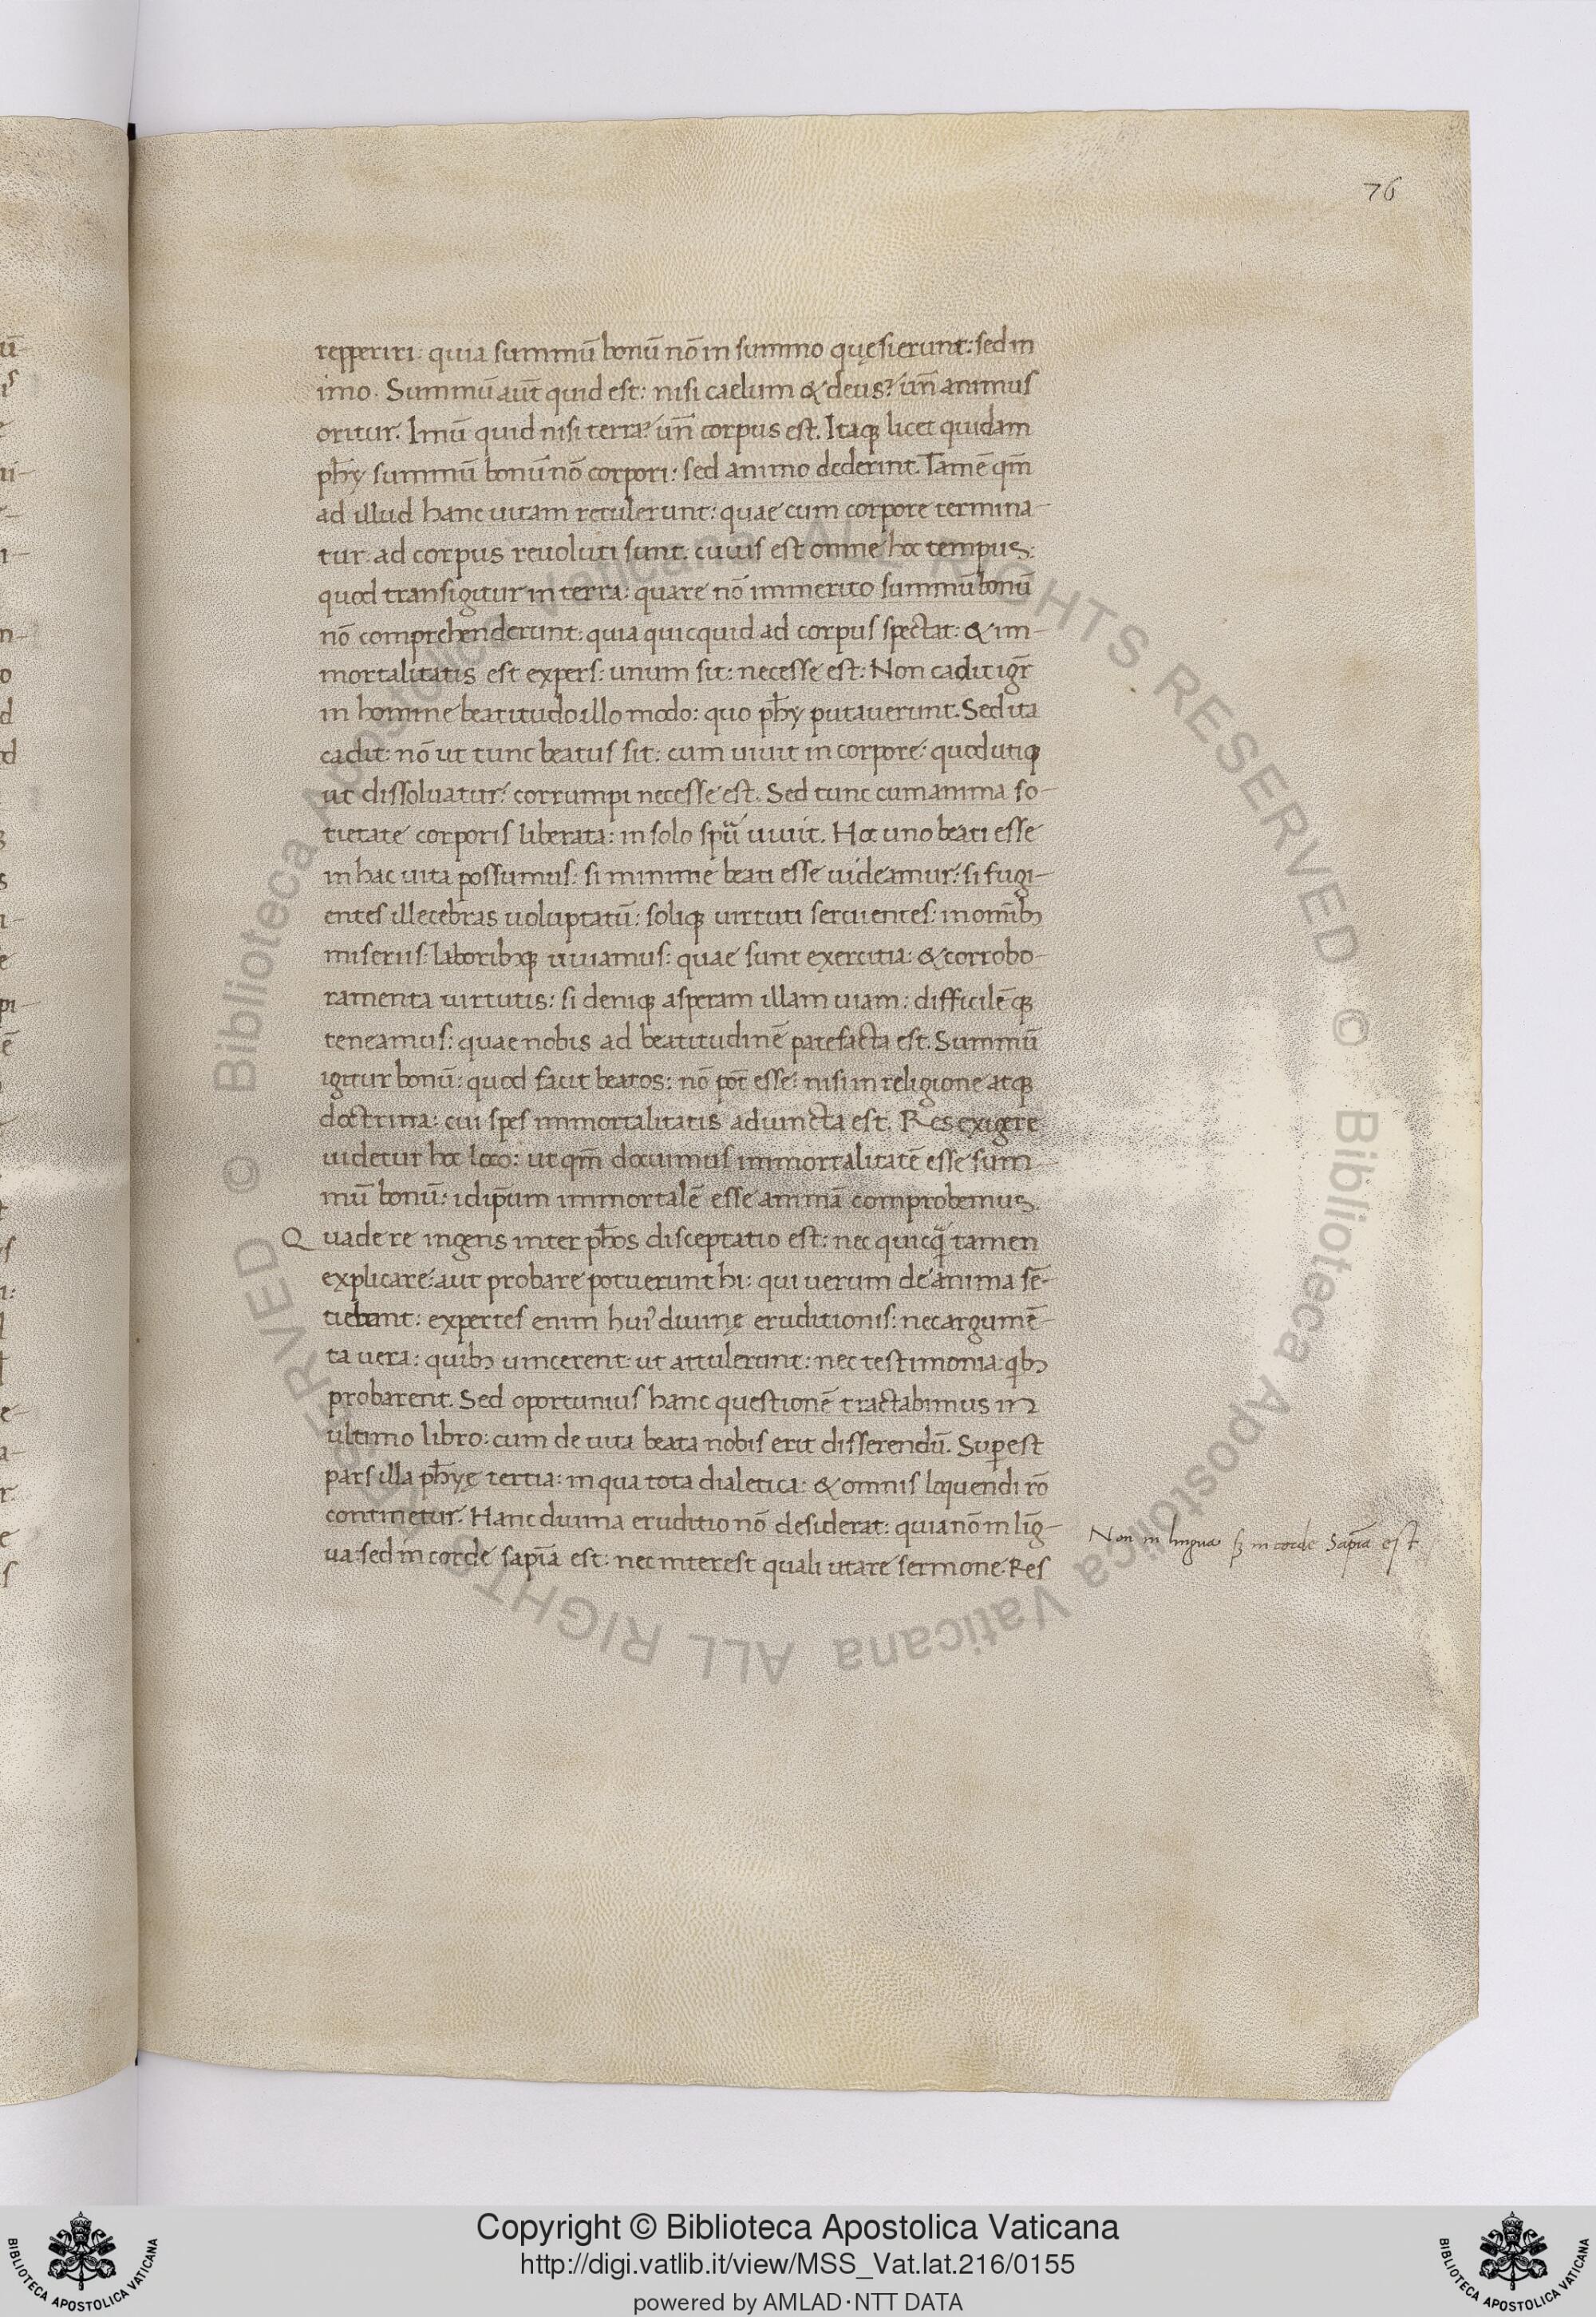 76
repperiri: quia summū bonū nō in summo quęsierunt: sed in
imo. Summū aūt quid est: nisi caelum & deus? un̄ animus
oritur. Imū quid nisi terra? un̄ corpus est. Itaqꝫ licet quidam
ph̄y summū bonū nō corpori: sed animo dederint. Tamē qm̄
ad illud hanc uitam retulerunt: quae cum corpore termina-
tur: ad corpus reuoluti sunt. cuius est omne hoc tempus:
quod transigitur in terra: quare nō immerito summū bonū
nō comprehenderunt: quia quicquid ad corpus spectat: & im-
mortalitatis est expers: unum sit: necesse est: Non cadit igr̄
in homine beatitudo illo modo: quo ph̄y putauerunt. Sed ita
cadit: nō ut tunc beatus sit: cum uiuit in corpore: quod utiqꝫ
ut dissoluatur: corrumpi necesse est. Sed tunc cum anima so-
tietate corporis liberata: in solo spū uiuit. Hoc uno beati esse
in hac uita possumus: si minime beati esse uideamur: si fugi-
entes illecebras uoluptatū: soliqꝫ uirtuti seruientes: in omībꝫ
miseriis: laboribꝫqꝫ uiuamus: quae sunt exercitia: & corrobo-
ramenta uirtutis: si deniqꝫ asperam illam uiam: difficilēqꝫ
teneamus: quae nobis ad beatitudinē patefacta est. Summū
igitur bonū: quod facit beatos: nō pōt esse: nisi in religione atqꝫ
doctrina: cui spes immortalitatis adiuncta est. Res exigere
uidetur hoc loco: ut qm̄ docuimus immortalitatē esse sum
mū bonū: id ip̄um immortalē esse animā comprobemus.
Qua de re ingens inter ph̄os disceptatio est: nec quicq̄ tamen
explicare: aut probare potuerunt hi: qui uerum de anima sē-
tiebant: expertes enim huiꝰ diuinę eruditionis: nec argumē-
ta uera: quibꝫ uincerent: ut attulerunt: nec testimonia: qbꝫ
probarent. Sed oportunius hanc questionē tractabimus in
ultimo libro: cum de uita beata nobis erit disserendū. Suꝑest
pars illa ph̄yę tertia: in qua tota dialetica: & omnis loquendi rō
continetur. Hanc diuina eruditio nō desiderat: quia nō in līg-
ua: sed in corde sapīa est: nec interest quali utare sermone. Res
Non in lingua sꝫ in corde Sapīa est
Copyright © Biblioteca Apostolica Vaticana
http://digi.vatlib.it/view/MSS_Vat.lat.216/0155
powered by AMLAD·NTT DATA
BIBLIOTECA APOSTOLICA VATICANA
BIBLIOTECA APOSTOLICA VATICANA
© Biblioteca Apostolica Vaticana ALL RIGHTS RESERVED
© Biblioteca Apostolica Vaticana ALL RIGHTS RESERVED